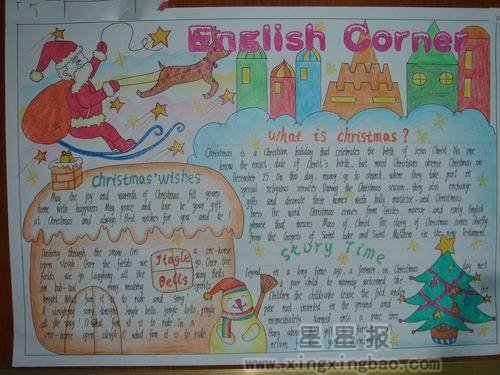 English Corner
What is christmas?
Christmas is a Christian holiday that celebrates the birth of Jesus Christ. No one
the exact date of Christ's birth, but most Christians observe Christmas on
December 25. On this day, many go to church, where they take part in
special religious services. During the Christmas season, they also exchange
gifts and decorate their homes with holly, mistletoe, and Christmas
trees. The word Christmas comes from Cristes maesse, and early English
phrase that means Mass of Christ. The story of Christmas comes chiefly
from the Gospels of Saint Luke and Saint Matthew in the New Testament.
christmas' wishes
May the joy and warmth of Christmas fill your
home with happiness. May peace and love be your gift
at Christmas and always! Best wishes for you and
Jingle
Bells
Dashing through the snow On a one-horse
open sleigh Over the fields we go Over the
fields we go Laughing all the way Bells
on bob-tail ring making spirits
bright What fun it is to ride and song
A sleighing song tonight Jingle bells, jingle bells, jingle
all the way! O what fun it is to ride In a
one-horse open O what fun it is to ride
Story Time
Legend a long time ago, a farmer, on Christmas day met
a poor child, he warmly received the
Children, the child
pine root inserted in the ground and
immediately turned into a pine tree,
Hung above
星星报
www.xingxingbao.com